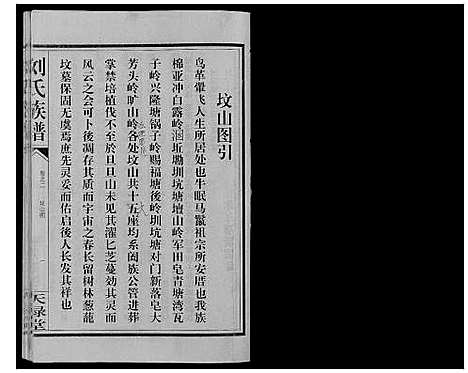 坟山图引
鸟革翚飞人生所居处也牛眠马鬣祖宗所安厝也我族
棉亚冲白露岭泪坵塘圳坑塘坛山岭军田皂青塘湾瓦
子岭兴隆塘锅子岭赐福塘後岭圳坑塘对门新落皂大
芳头岭旷山岭各处坟山共十五座均系阖族公管进葬
掌禁培植伐不至於旦旦山未见其濯匕芝蔓効其灵而
风云之会可卜後凋存其质而宇宙之春长留树林葱茏
坟墓保固无虞焉庶先灵妥而佑启後人长发其祥也
刘氏族谱
卷之二
天禄堂